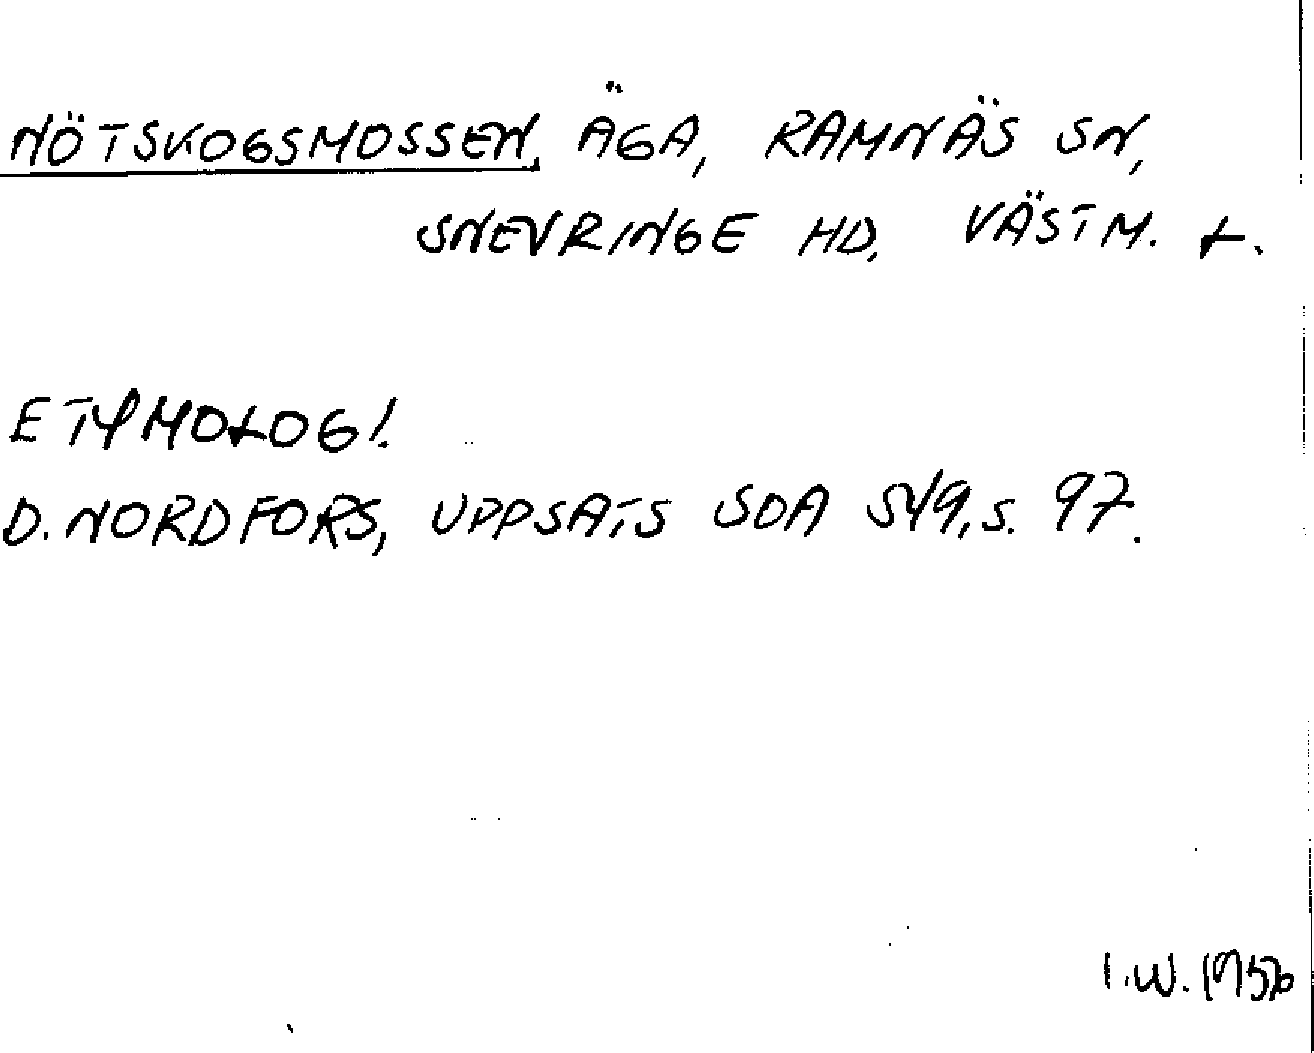 NÖTSKOGSMOSSEN, ÄGA, RAMNÄS SN,
SNEVRINGE HD, VÄSTM. L.
ETYMOLOGI.
D. NORDFORS, UPPSATS SOA 549, S. 97.
I.W.